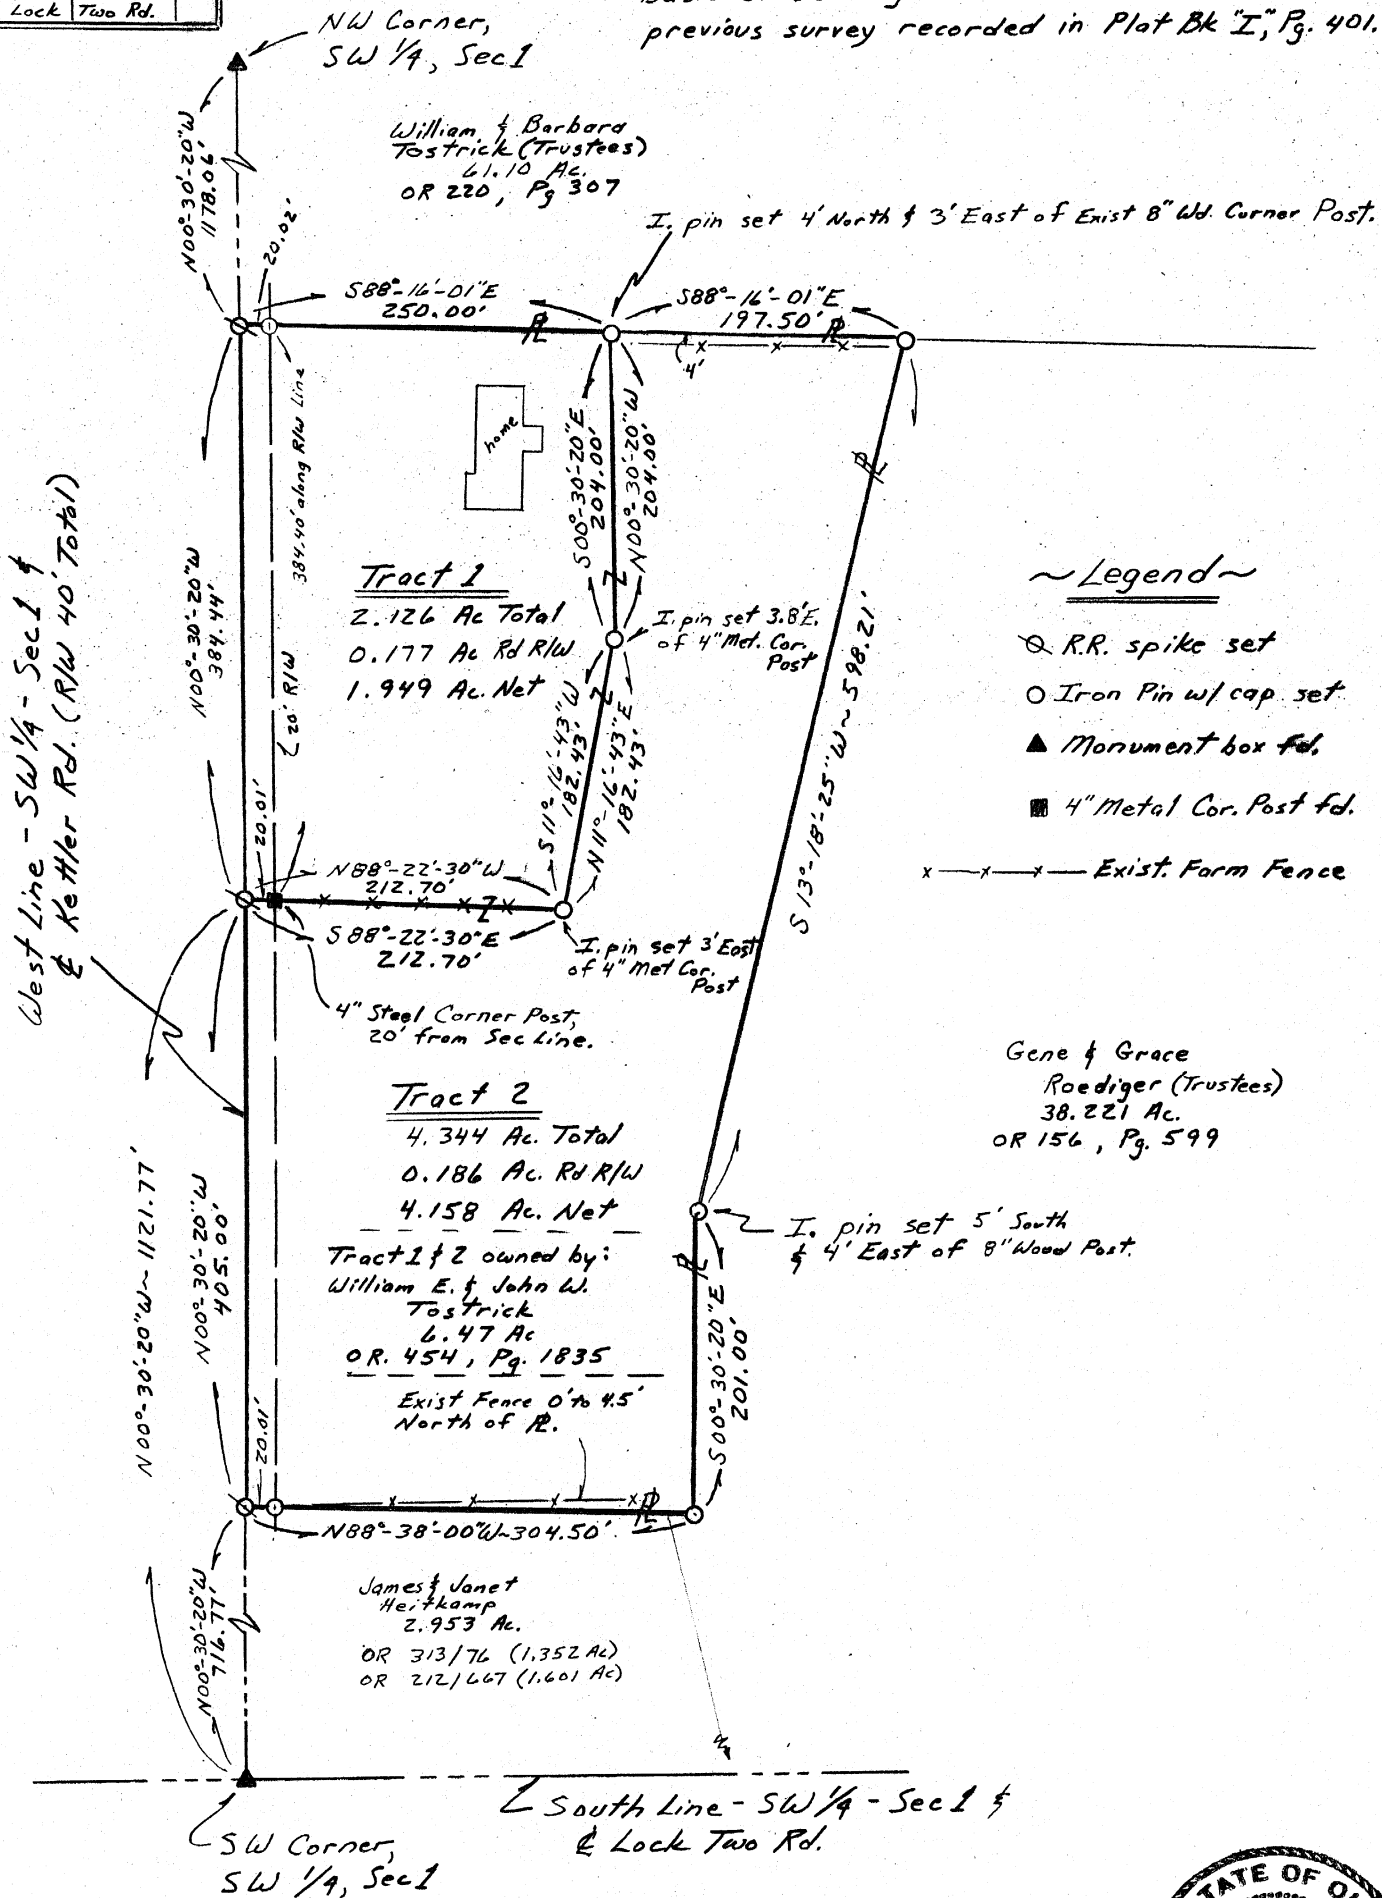 Lock Two Rd.
previous survey recorded in Plat Bk "I", Pg. 401.
NW Corner,
SW 1/4, Sec 1
William & Barbara
Tostrick (Trustees)
61.10 Ac.
OR 220, Pg 307
N00°-30'-20"W
1178.06'
20.02'
I. pin set 4' North & 3' East of Exist 8" Wd. Corner Post.
S88°-16'-01"E
250.00'
S88°-16'-01"E
197.50'
PL
PL
4'
home
384.40' along R/W Line
S00°-30'-20"E
204.00'
N00°-30'-20"W
204.00'
PL
West Line - SW 1/4 - Sec 1 &
℄ Kettler Rd. (R/W 40' Total)
N00°-30'-20"W
384.44'
20' R/W
Tract 1
2.126 Ac Total
0.177 Ac Rd R/W
1.949 Ac. Net
I. pin set 3.8'E.
of 4" Met. Cor.
Post
S11°-16'-43"W
182.43'
N11°-16'-43"E
182.43'
S13°-18'-25"W~598.21'
~Legend~
R.R. spike set
Iron Pin w/ cap set
Monument box fd.
4" Metal Cor. Post fd.
x—x—x— Exist. Farm Fence
20.01'
N88°-22'-30"W
212.70'
S88°-22'-30"E
212.70'
I. pin set 3' East
of 4" Met Cor.
Post
4" Steel Corner Post,
20' from Sec Line.
Gene & Grace
Roediger (Trustees)
38.221 Ac.
OR 156, Pg. 599
Tract 2
4.344 Ac. Total
0.186 Ac. Rd R/W
4.158 Ac. Net
Tract 1 & 2 owned by:
William E. & John W.
Tostrick
6.47 Ac
OR. 454, Pg. 1835
N00°-30'-20"W~1121.77'
N00°-30'-20"W
405.00'
I. pin set 5' South
& 4' East of 8" Wood Post.
PL
S00°-30'-20"E
201.00'
Exist Fence 0' to 4.5'
North of PL.
20.01'
PL
N88°-38'-00"W~304.50'
N00°-30'-20"W
716.77'
James & Janet
Heitkamp
2.953 Ac.
OR 313/76 (1.352 Ac)
OR 212/667 (1.601 Ac)
South Line - SW 1/4 - Sec 1 &
℄ Lock Two Rd.
SW Corner,
SW 1/4, Sec 1
STATE OF O